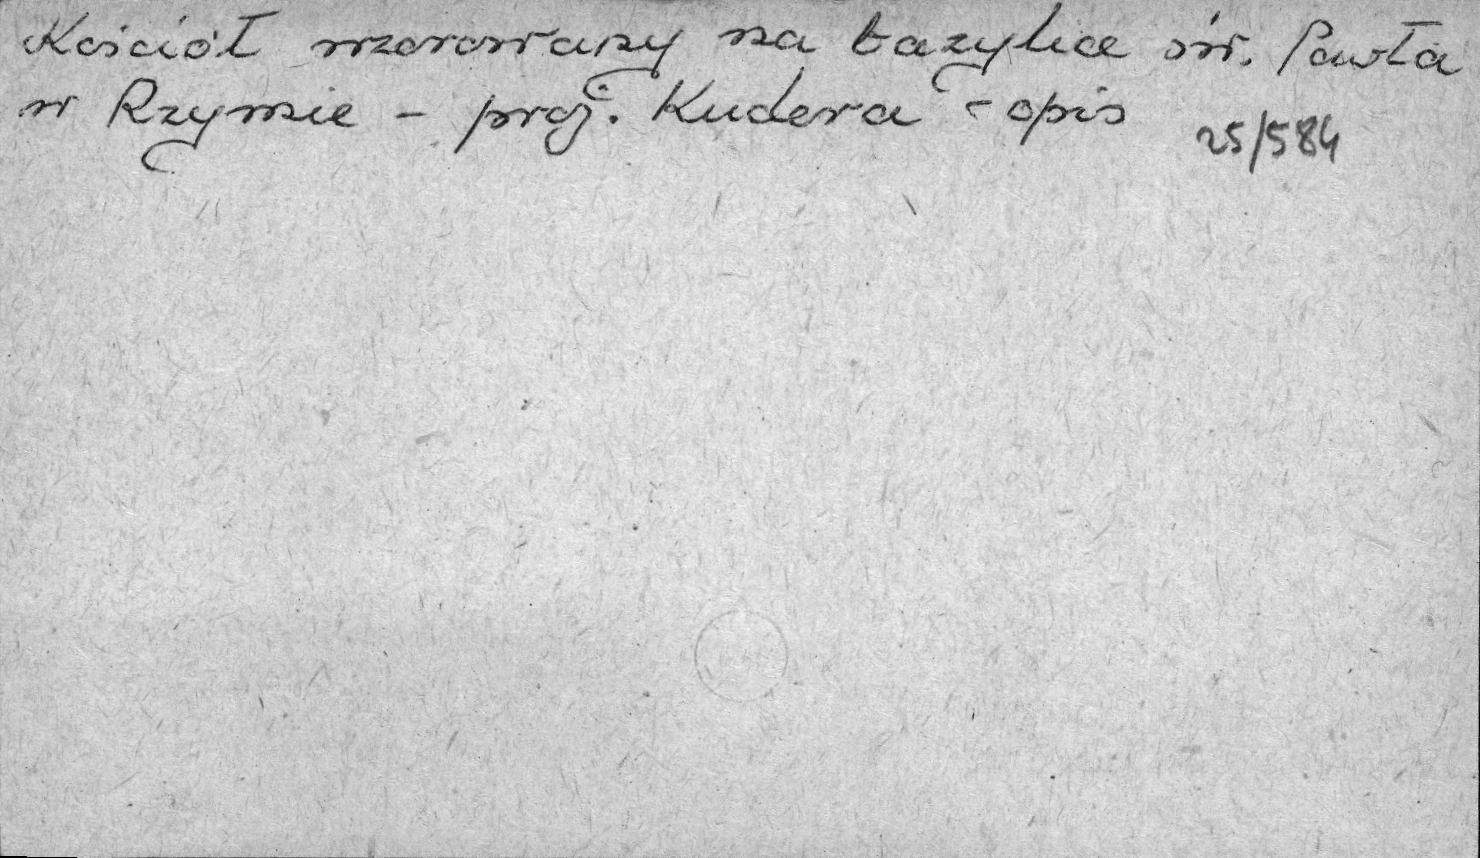 Kościół wzorowany na bazylice św. Pawła
w Rzymie - proj. Kudera - opis
25/584